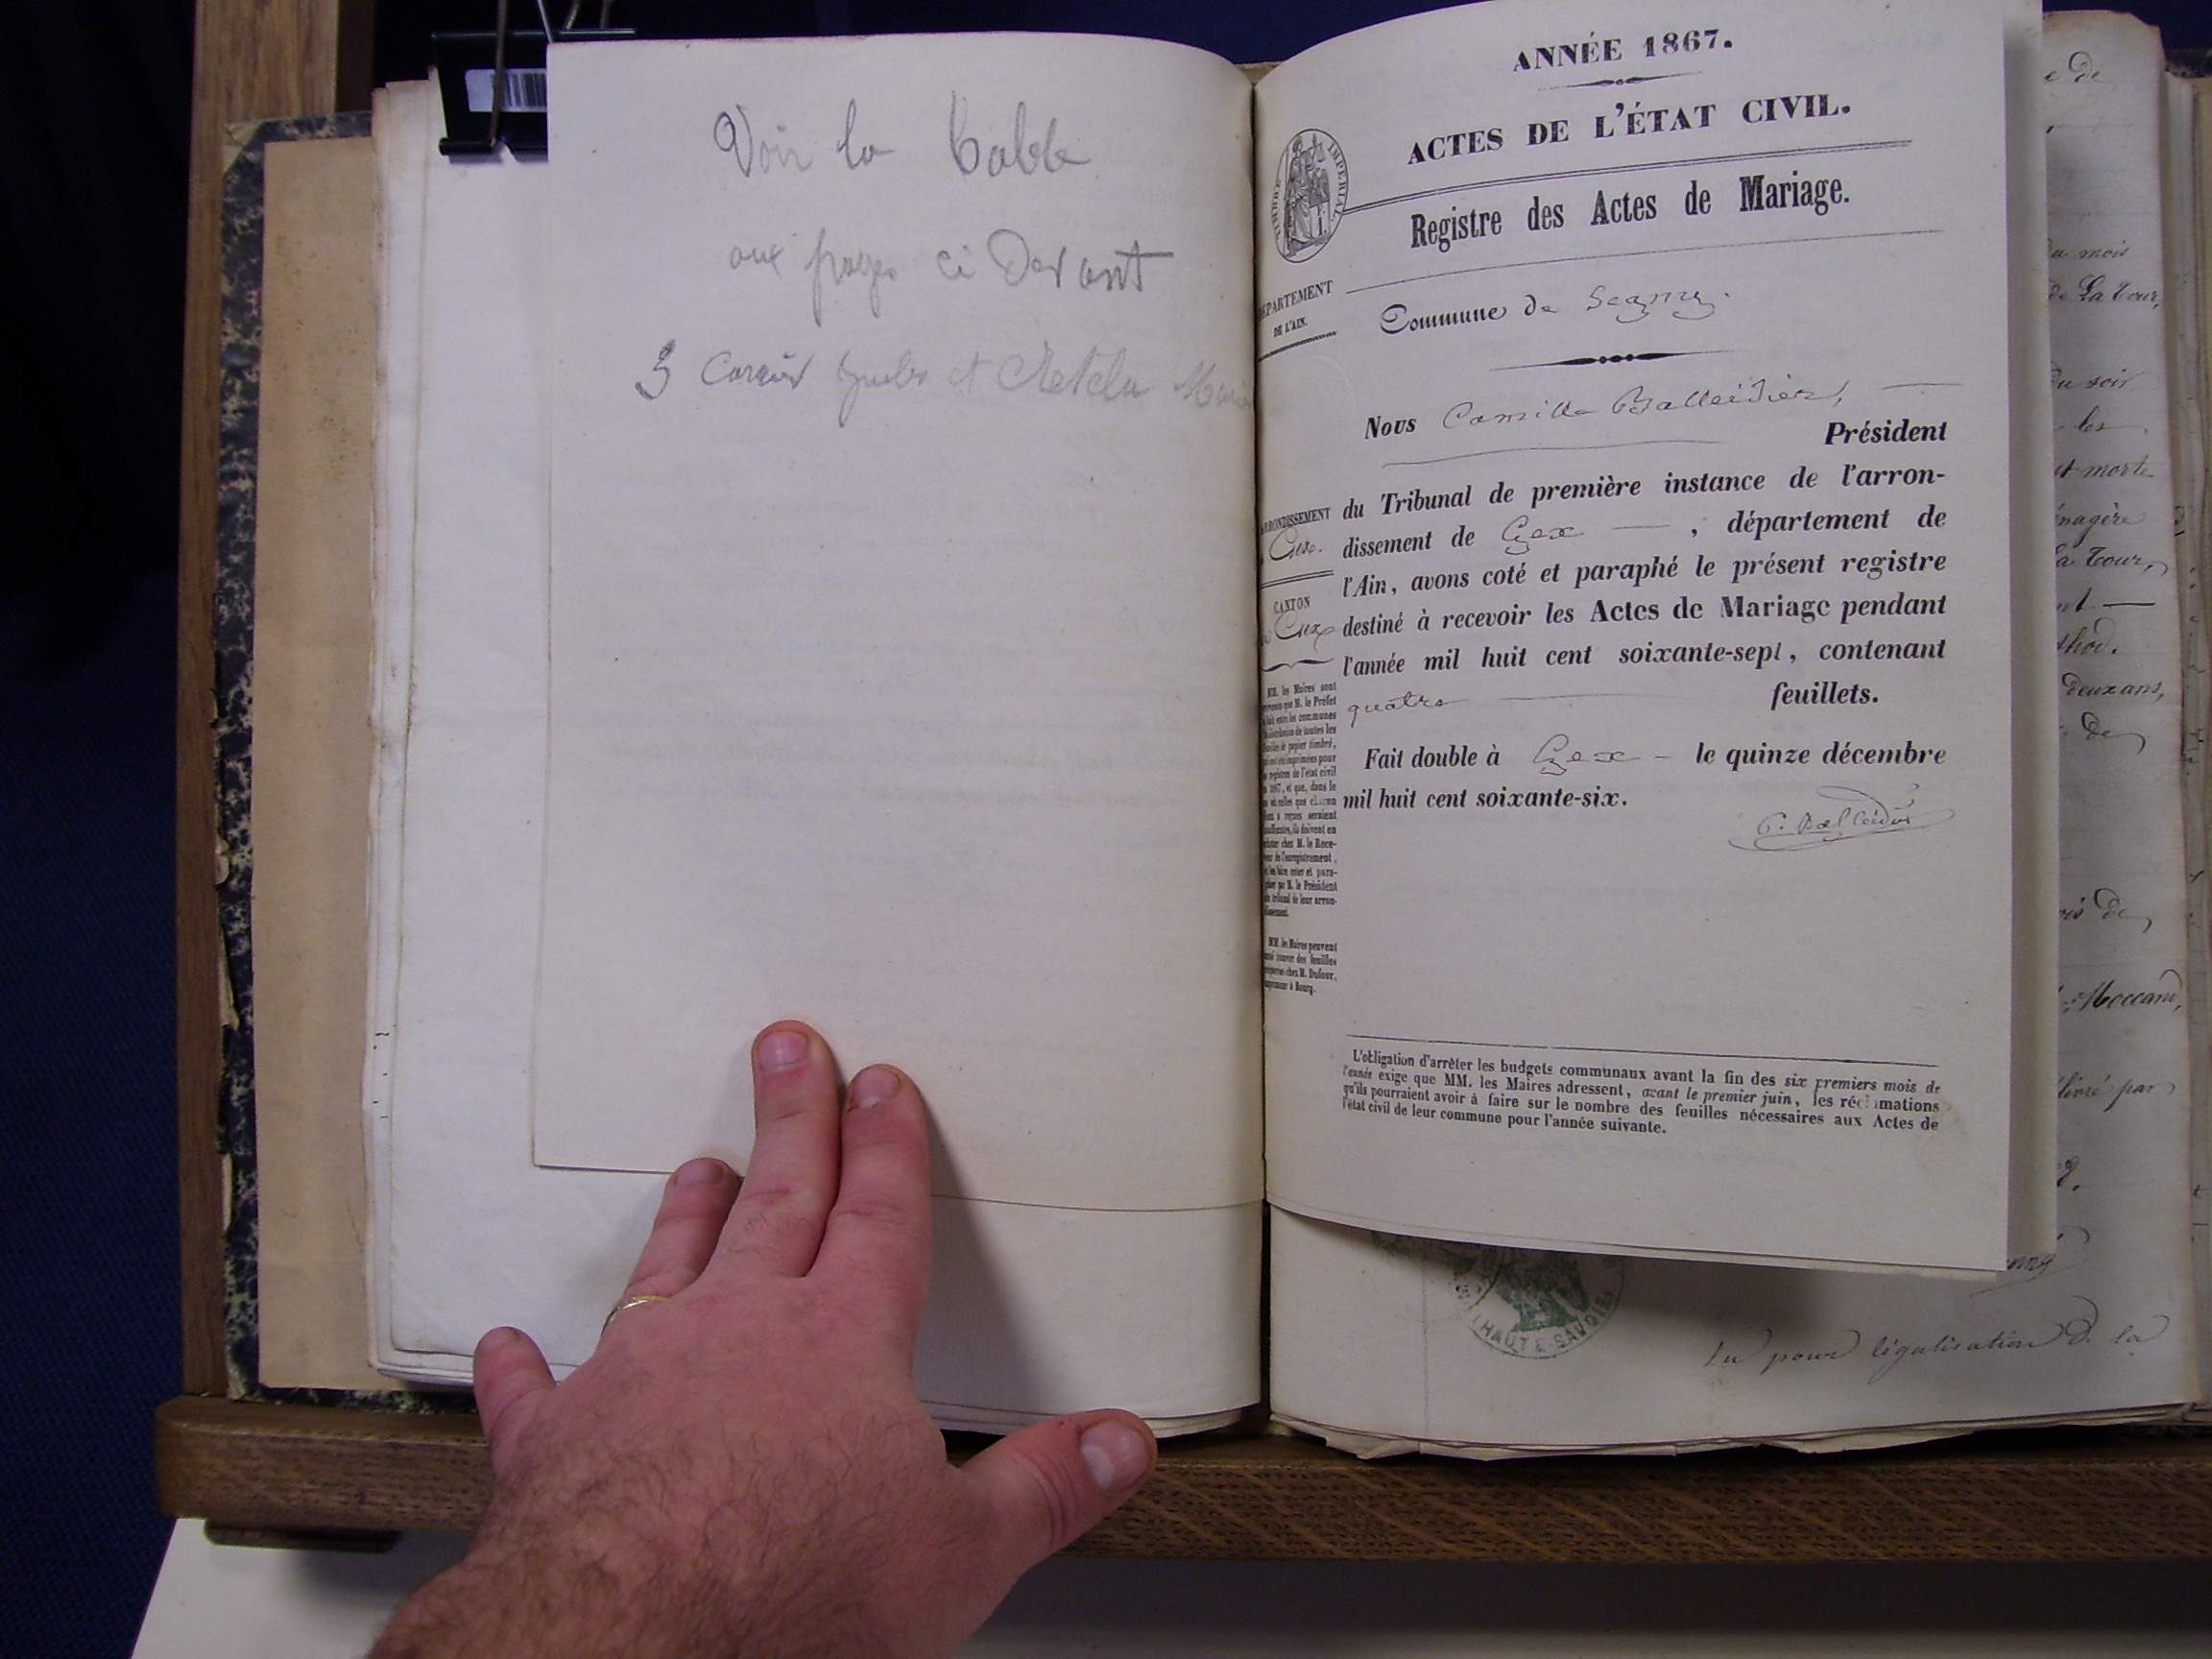 Voir la table
aux pages ci Devant
3
et
ANNÉE 1867.
ACTES DE L'ÉTAT CIVIL.
TIMBRE IMPÉRIAL
Registre des Actes de Mariage.
DÉPARTEMENT
DE L'AIN.
Commune de Segny.
Nous Camille Balleidier,
Président
du Tribunal de première instance de l'arron-
dissement de Gex — , département de
l'Ain, avons coté et paraphé le présent registre
destiné à recevoir les Actes de Mariage pendant
l'année mil huit cent soixante-sept, contenant
quatre — feuillets.
Fait double à Gex - le quinze décembre
mil huit cent soixante-six.
C. Balleidier
ARRONDISSEMENT
Gex.
CANTON
Gex
MM. les Maires sont
que M. le Préfet
les communes
de toutes les
de papier timbré,
imprimées pour
registres de l'état civil
1867, et que, dans le
où celles que chacun
reçues seraient
ils doivent en
chez M. le Rece-
de l'enregistrement,
faire coter et para-
par M. le Président
tribunal de leur arron-
dissement.
MM. les Maires peuvent
trouver des feuilles
chez M. Dufour,
imprimeur à Bourg.
L'obligation d'arrêter les budgets communaux avant la fin des six premiers mois de
l'année exige que MM. les Maires adressent, avant le premier juin, les réclamations
qu'ils pourraient avoir à faire sur le nombre des feuilles nécessaires aux Actes de
l'état civil de leur commune pour l'année suivante.
e de
du mois
de La Tour,
du soir
les
et morte
ménagère
La Tour,
deux ans,
de
de
Moccand,
par
HAUTE-SAVOIE
Vu pour légalisation de la